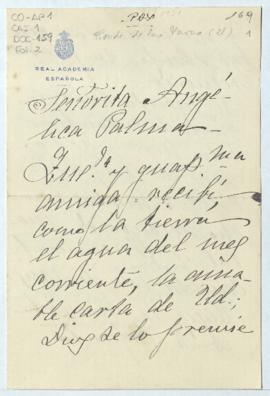 CO-AP1
CAJ-1
DOC-159
Fol: 2
169
1
REAL ACADEMIA
ESPAÑOLA
Señorita Angé-
lica Palma
y guap ma
amiga: recibí
como la tierra
el agua del mes
corriente, la ama-
ble carta de Ud.;
Dios se lo premie